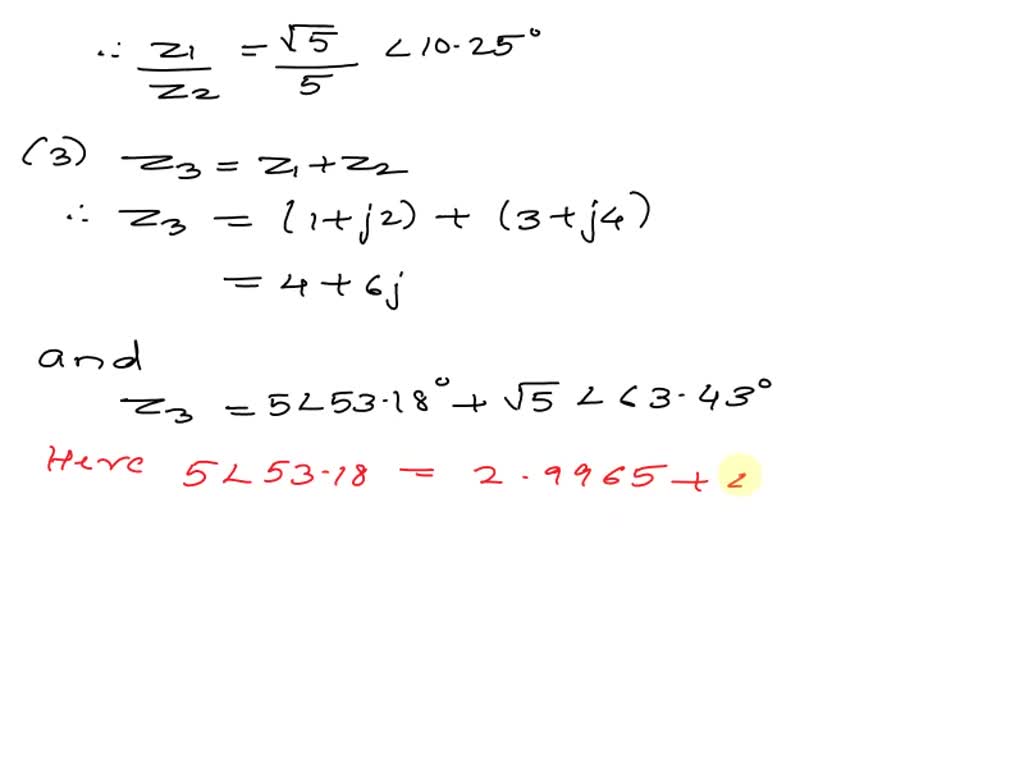 ∴ z1/z2 = √5/5 ∠10.25°
(3) z3 = z1 + z2
∴ z3 = (1+j2) + (3+j4)
= 4 + 6j
and
z3 = 5∠53.18° + √5 ∠63.43°
Here 5∠53.18 = 2.9965 +